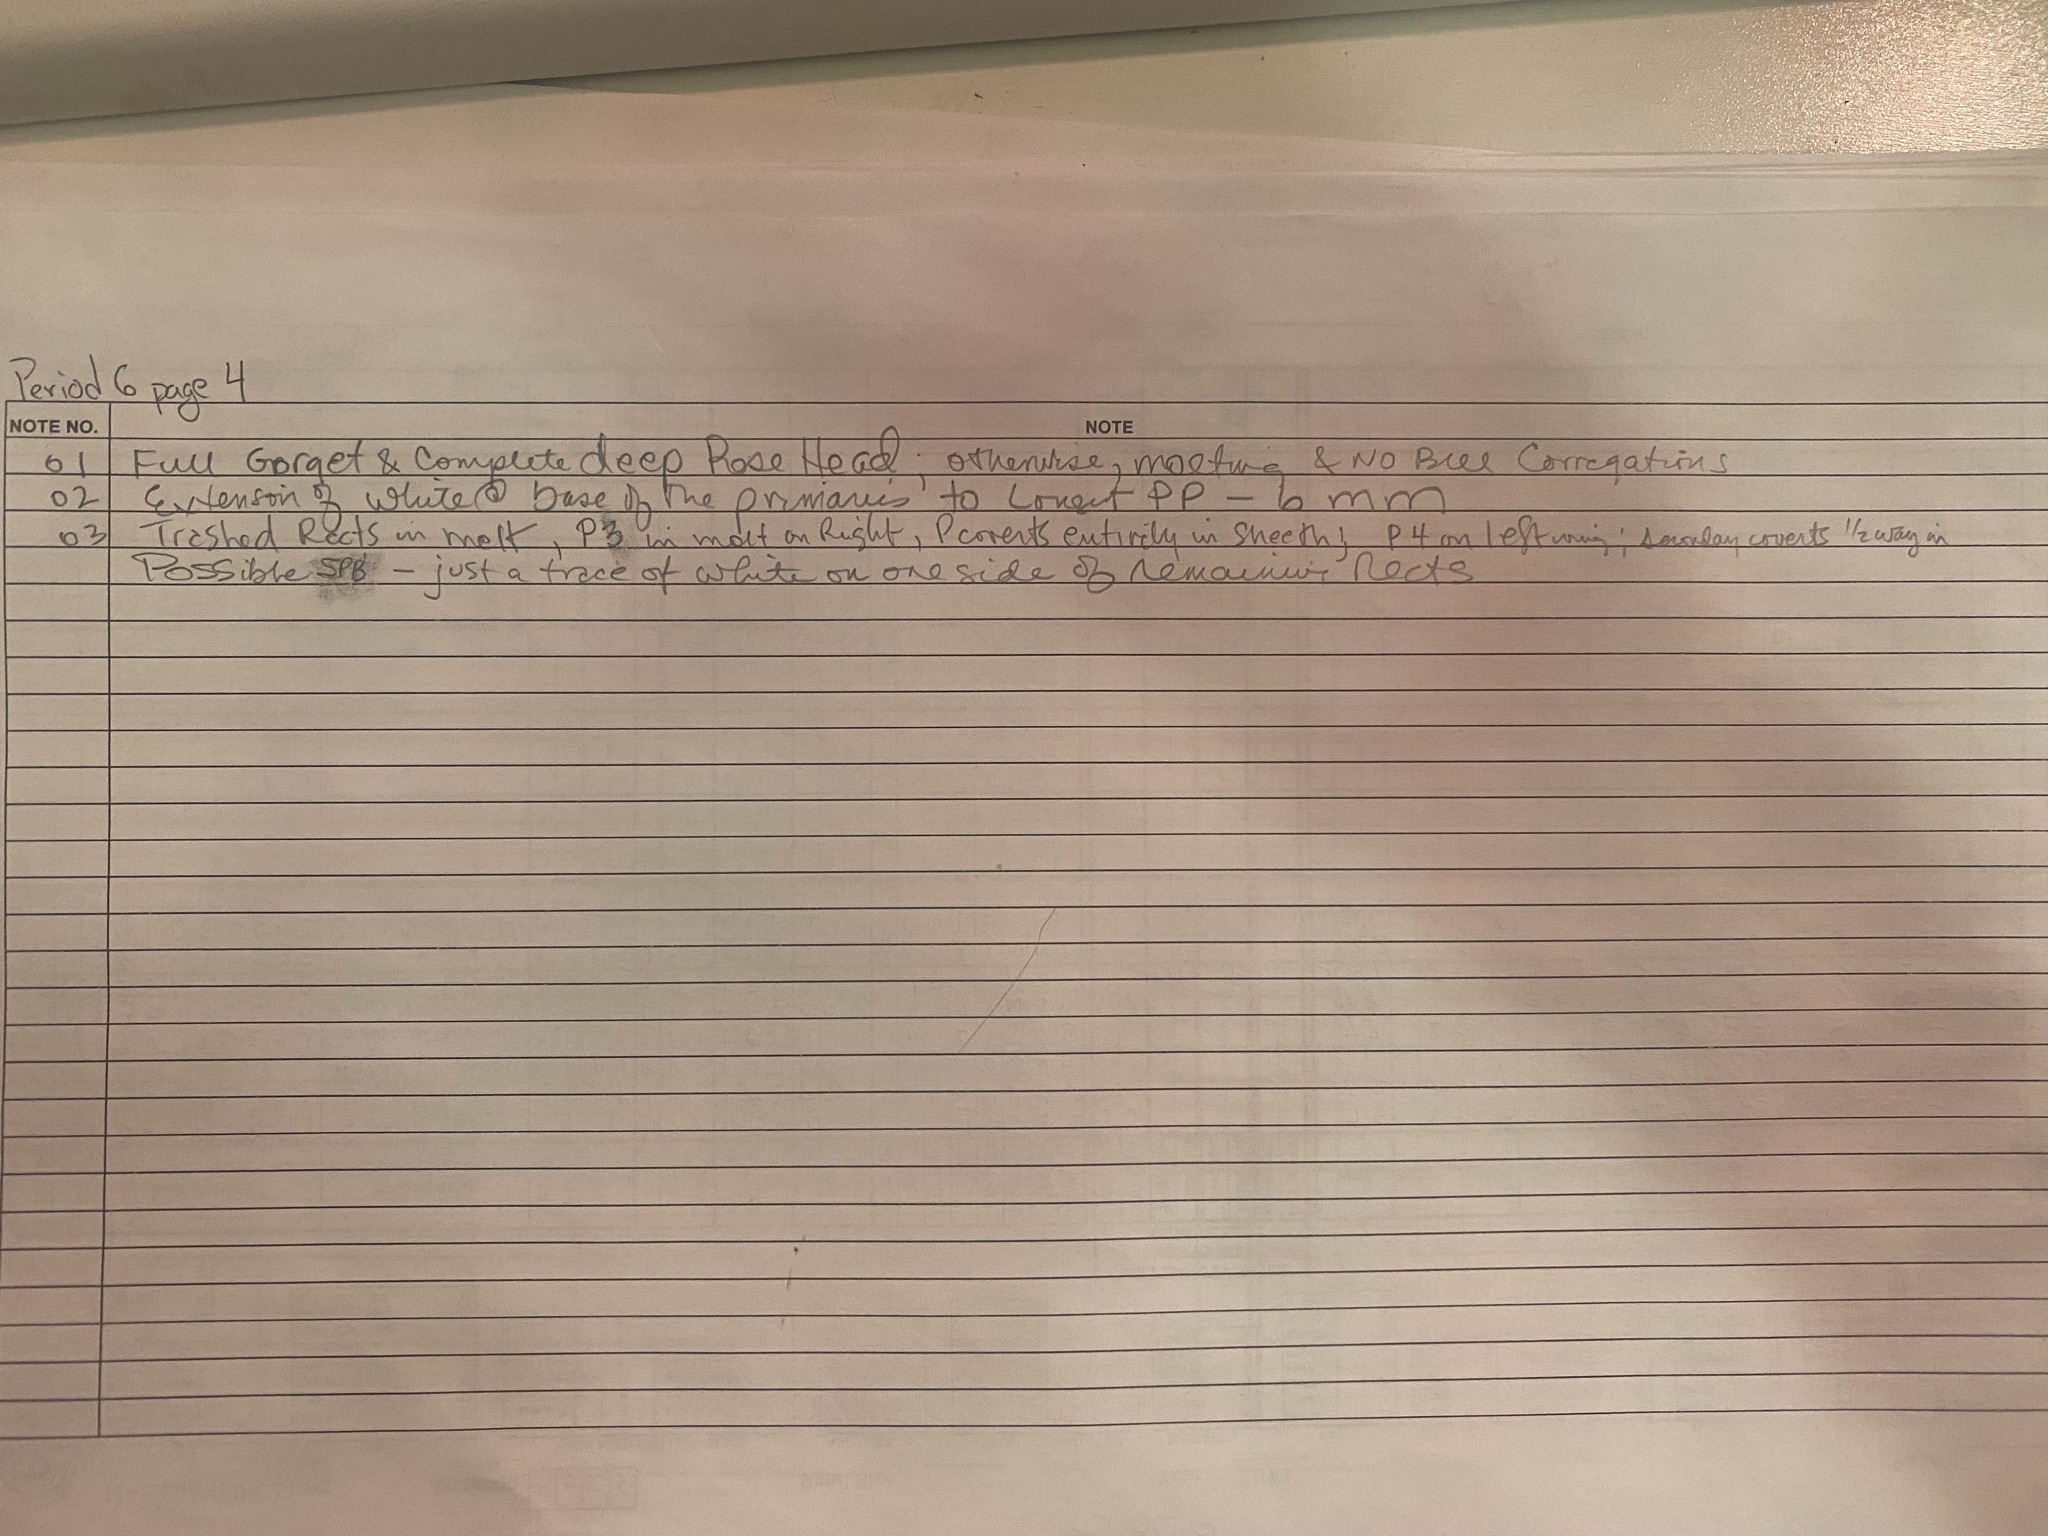 Period 6 page 4
NOTE NO. NOTE
01 Full Gorget & Complete deep Rose Head; otherwise, molting & NO Bill Corregations
02 Extenson of white @ base of the primaries to longest PP - 6 mm
03 Trashed Rects in molt, P3 in molt on Right, P coverts entirily in sheeth; P4 on left wing; secondary coverts 1/2 way in
Possible SPB - just a trace of white on one side of remaining Rects